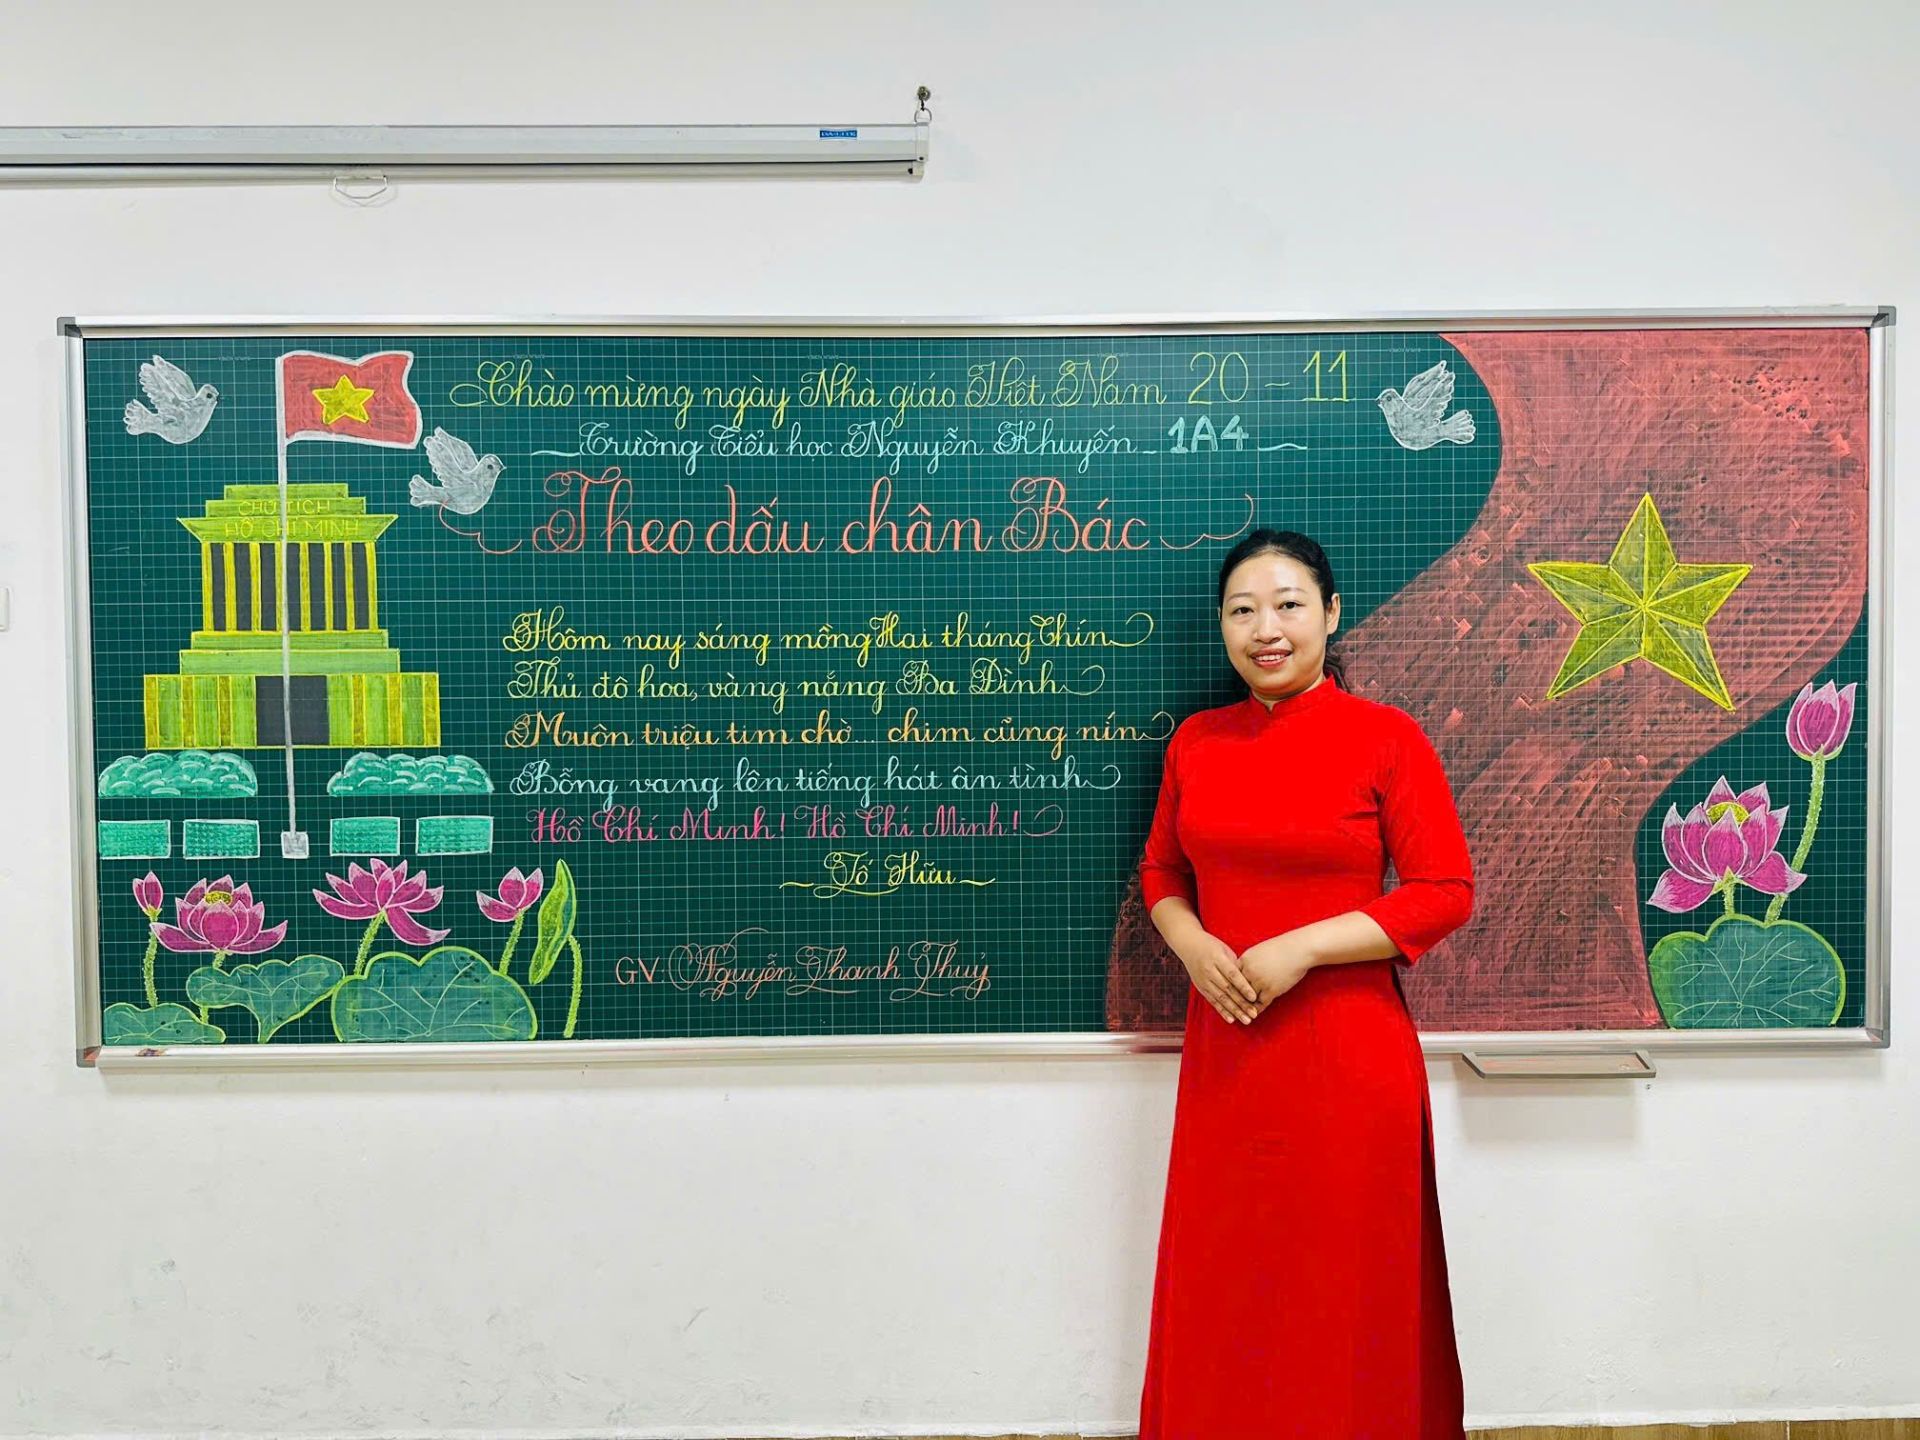 Chào mừng ngày Nhà giáo Việt Nam 20 - 11
Trường Tiểu học Nguyễn Khuyến - 1A4
Theo dấu chân Bác
CHỦ TỊCH
HỒ CHÍ MINH
Hôm nay sáng mồng Hai tháng Chín
Thủ đô hoa, vàng nắng Ba Đình
Muôn triệu tim chờ... chim cũng nín
Bỗng vang lên tiếng hát ân tình
Hồ Chí Minh! Hồ Chí Minh!
Tố Hữu
GV: Nguyễn Thanh Thuỷ